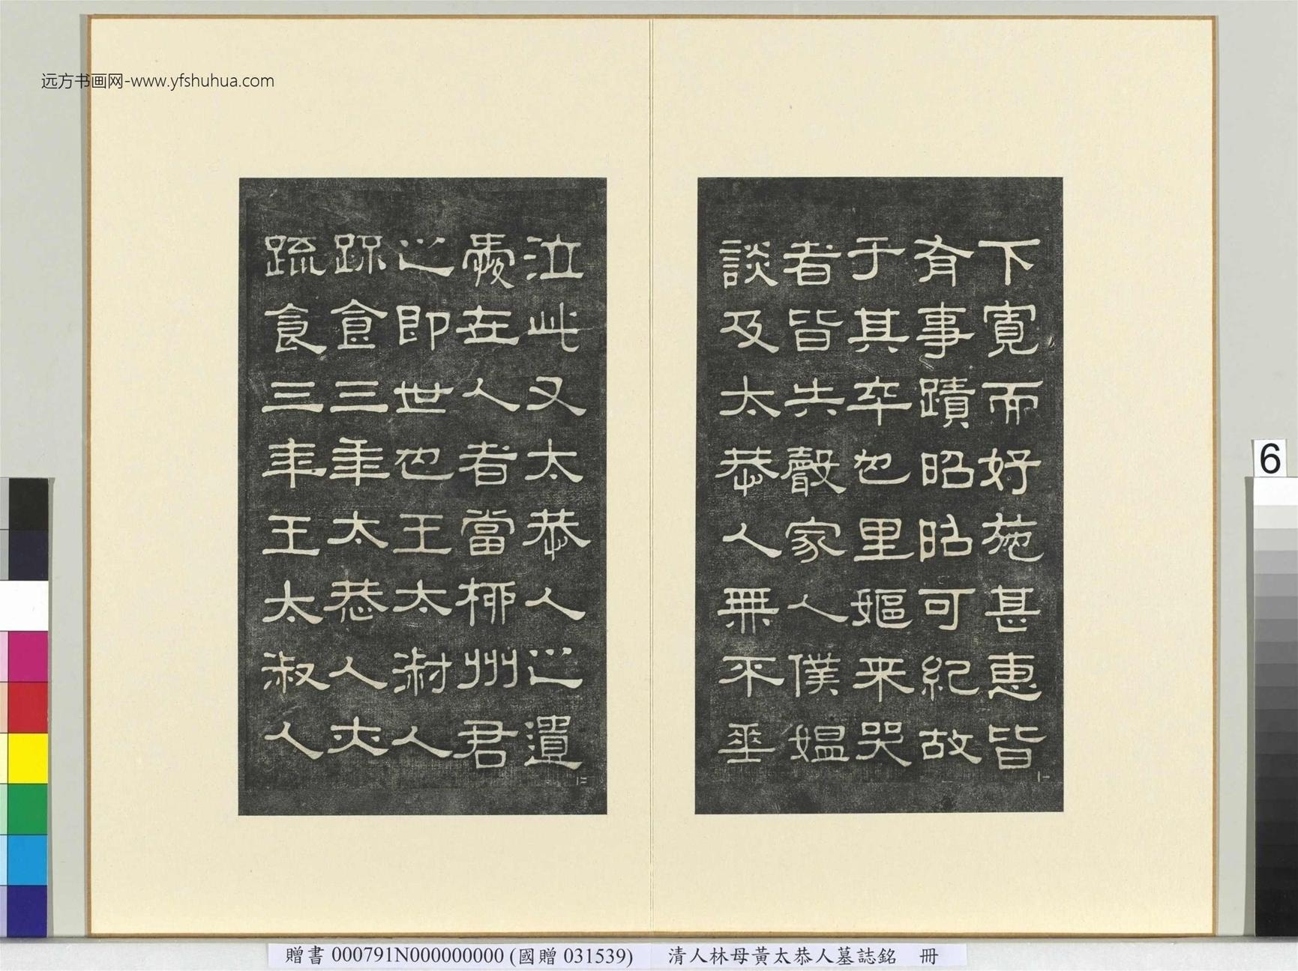 远方书画网-www.yfshuhua.com
下寬而好施甚惠皆
有事蹟昭昭可紀故
于其卒也里嫗来哭
者皆失聲家人僕媼
談及太恭人無不垂
泣此又太恭人之遺
愛在人者當柳州君
之即世也王太淑人
疏食三年太恭人亦
疏食三年王太淑人
6
贈書 000791N000000000 (國贈 031539) 清人林母黃太恭人墓誌銘 冊